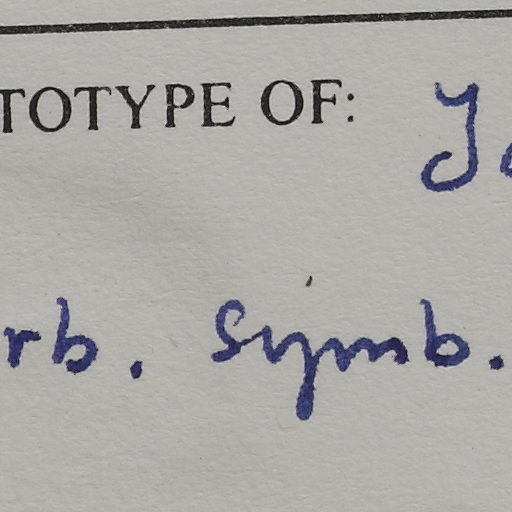 TOTYPE OF: J
rb. symb.